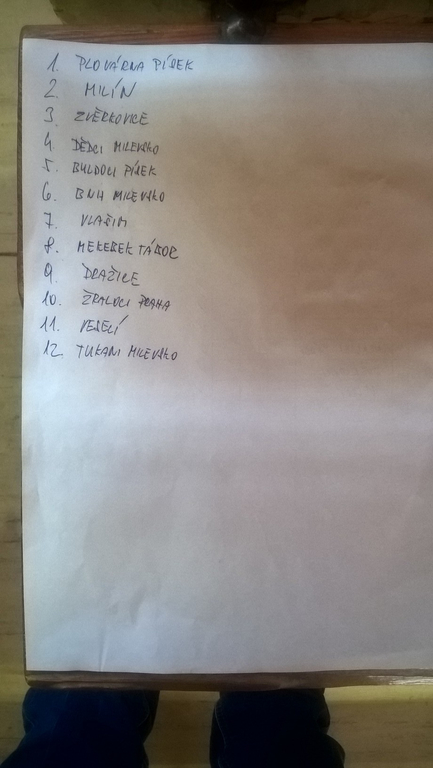 1. PLOVÁRNA PÍSEK
2. MILÍN
3. ZVĚRKOVICE
4. DĚDCI MILEVSKO
5. BULDOCI PÍSEK
6. BNH MILEVSKO
7. VLAŠIM
8. MEKEBEK TÁBOR
9. DRAŽICE
10. ŽRALOCI PRAHA
11. VESELÍ
12. TUKANI MILEVSKO